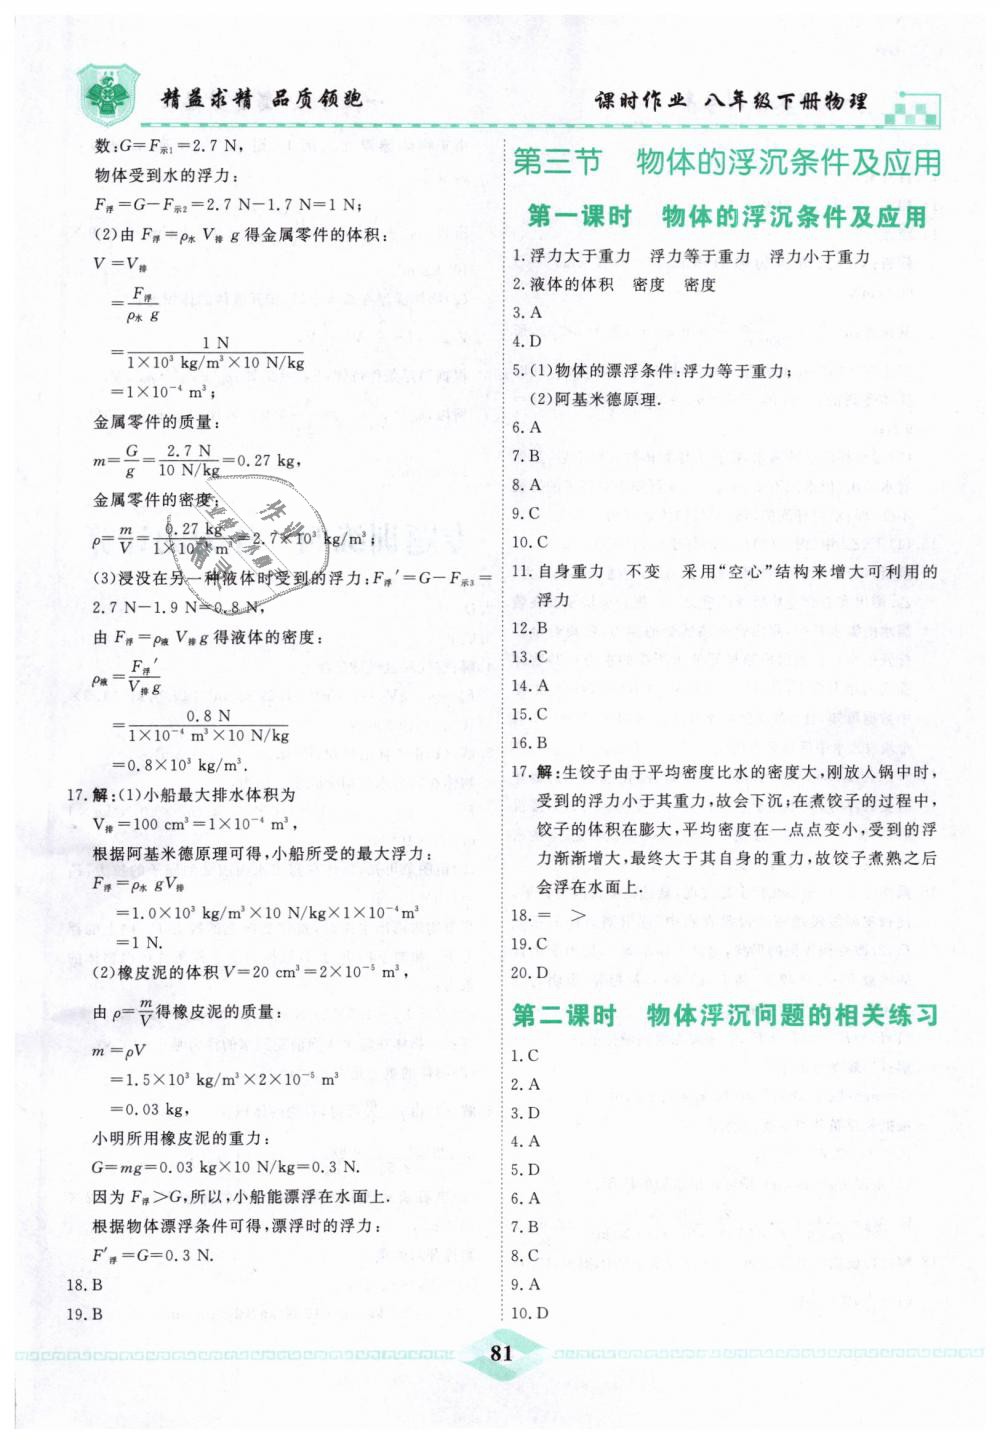 精益求精 品质领跑
课时作业 八年级下册物理
数:G=F示1=2.7 N,
物体受到水的浮力:
F浮=G-F示2=2.7 N-1.7 N=1 N;
(2)由 F浮=ρ水 V排 g得金属零件的体积:
V=V排
=F浮/ρ水 g
=1 N/1×10³ kg/m³×10 N/kg
=1×10⁻⁴ m³;
金属零件的质量:
m=G/g=2.7 N/10 N/kg=0.27 kg,
金属零件的密度:
ρ=m/V=0.27 kg/1×10⁻⁴ m³=2.7×10³ kg/m³;
(3)浸没在另一种液体时受到的浮力:F浮′=G-F示3=
2.7 N-1.9 N=0.8 N,
由 F浮=ρ液 V排g得液体的密度:
ρ液=F浮′/V排g
=0.8 N/1×10⁻⁴ m³×10 N/kg
=0.8×10³ kg/m³.
17.解:(1)小船最大排水体积为
V排=100 cm³=1×10⁻⁴ m³,
根据阿基米德原理可得,小船所受的最大浮力:
F浮=ρ水 gV排
=1.0×10³ kg/m³×10 N/kg×1×10⁻⁴m³
=1 N.
(2)橡皮泥的体积 V=20 cm³=2×10⁻⁵ m³,
由 ρ=m/V得橡皮泥的质量:
m=ρV
=1.5×10³ kg/m³×2×10⁻⁵ m³
=0.03 kg,
小明所用橡皮泥的重力:
G=mg=0.03 kg×10 N/kg=0.3 N.
因为 F浮>G,所以,小船能漂浮在水面上.
根据物体漂浮条件可得,漂浮时的浮力:
F′浮=G=0.3 N.
18.B
19.B
第三节 物体的浮沉条件及应用
第一课时 物体的浮沉条件及应用
1.浮力大于重力 浮力等于重力 浮力小于重力
2.液体的体积 密度 密度
3.A
4.D
5.(1)物体的漂浮条件:浮力等于重力;
(2)阿基米德原理.
6.A
7.B
8.A
9.C
10.C
11.自身重力 不变 采用“空心”结构来增大可利用的
浮力
12.B
13.C
14.A
15.C
16.B
17.解:生饺子由于平均密度比水的密度大,刚放入锅中时,
受到的浮力小于其重力,故会下沉;在煮饺子的过程中,
饺子的体积在膨大,平均密度在一点点变小,受到的浮
力渐渐增大,最终大于其自身的重力,故饺子煮熟之后
会浮在水面上.
18.= >
19.C
20.D
第二课时 物体浮沉问题的相关练习
1.C
2.A
3.D
4.A
5.D
6.A
7.B
8.C
9.A
10.D
81